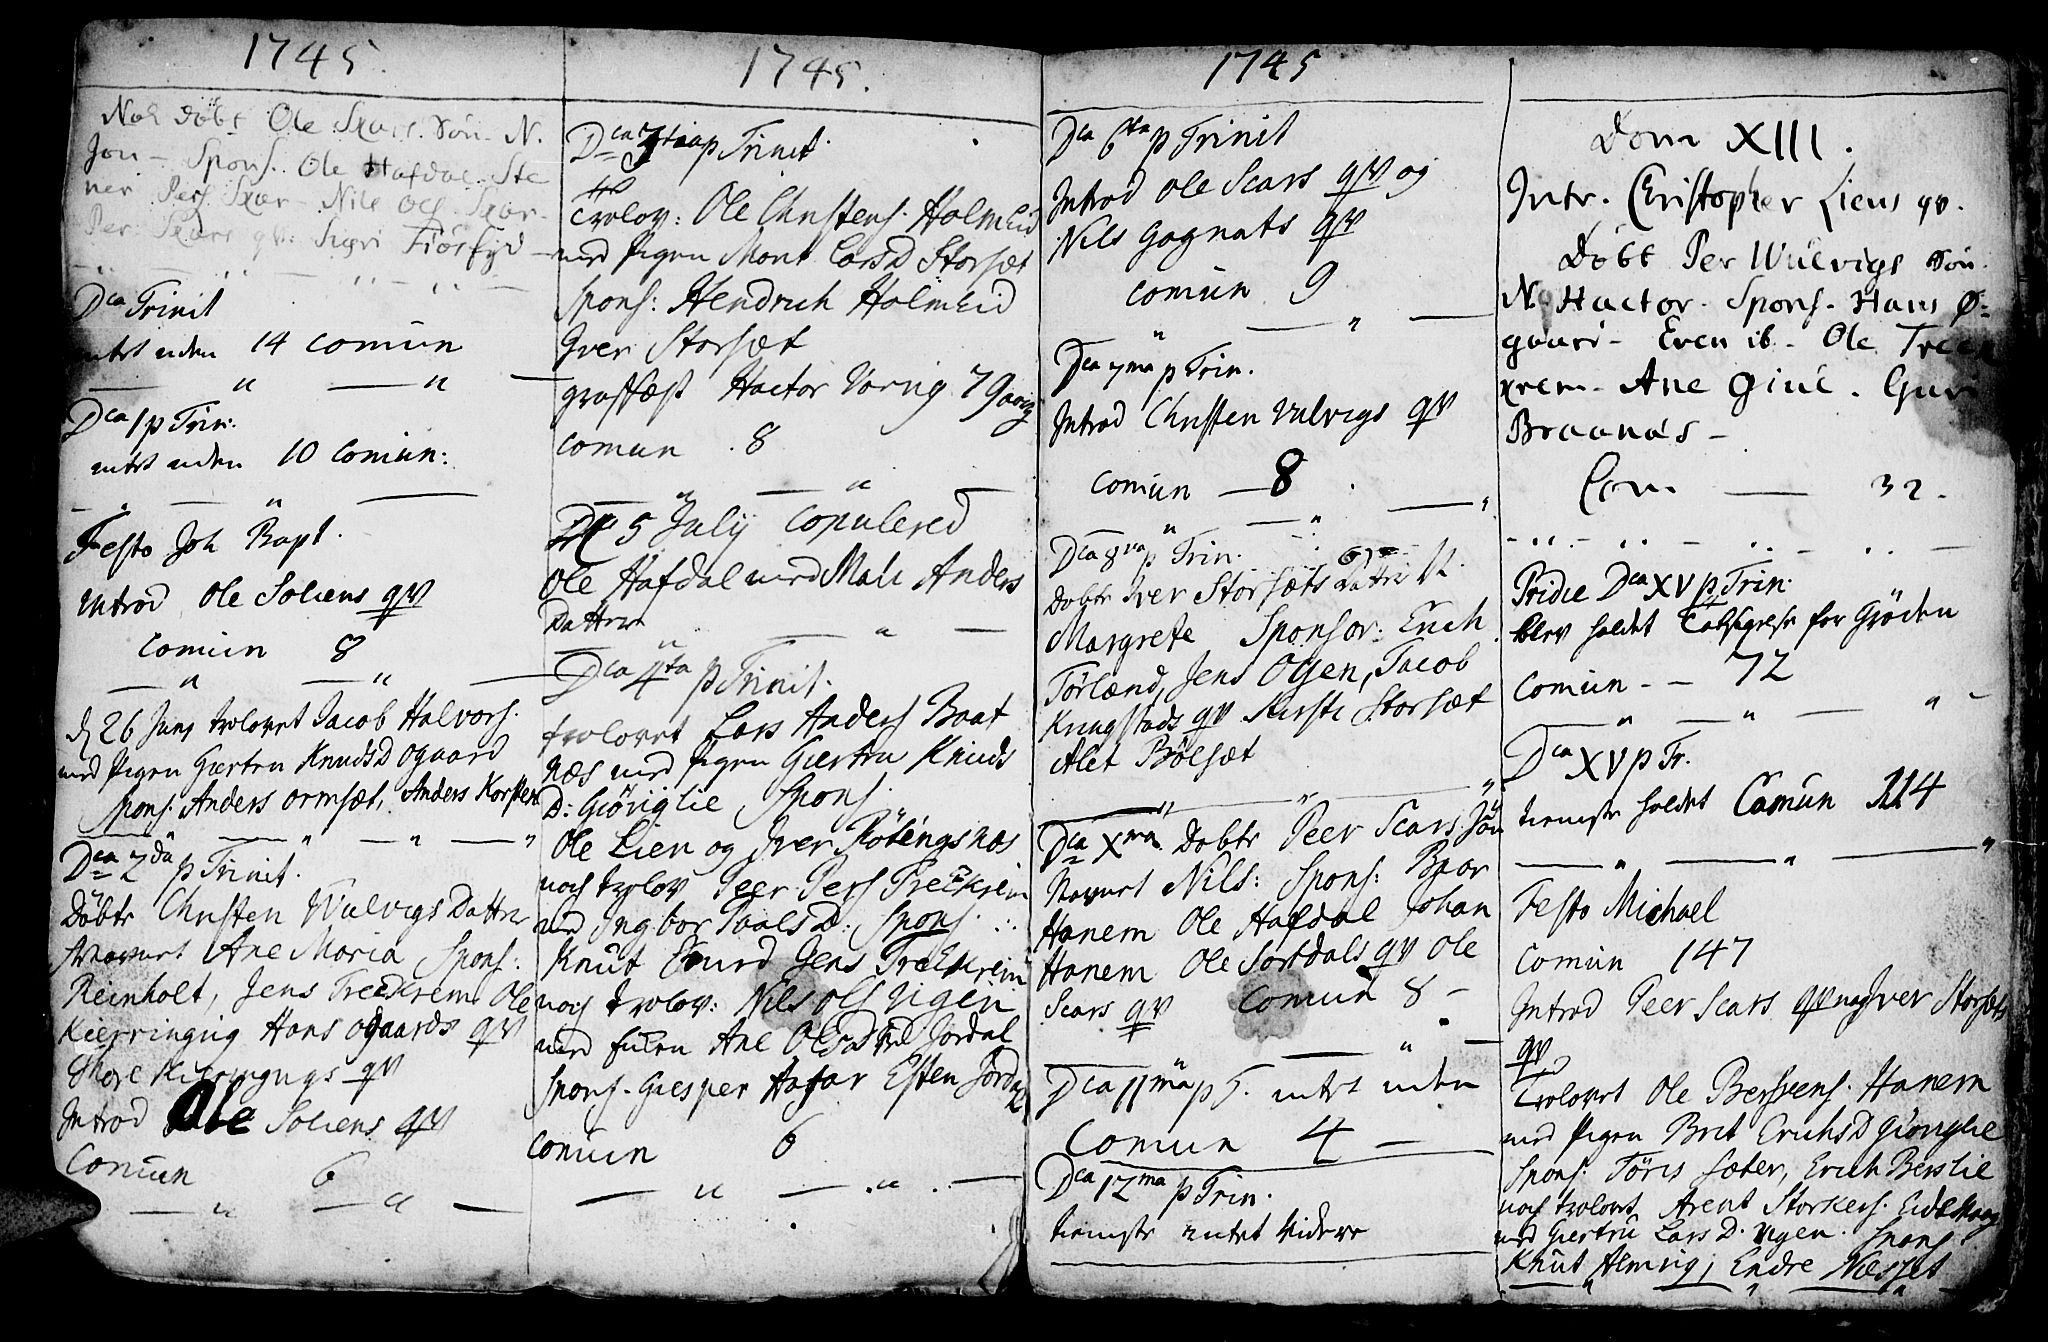 1745.
Nok döbt Ole Skars Sön N.
Jon - Spons. Ole Hafdal. Ste
ner Pers. Skar - Nils Ols. Skar.
Per Skars qv: Sigri Fiörsyd
Dca Trinit
intet uden 14 comun
Dca 1 p Trin:
intet uden 10 comun:
Festo Joh Bapt.
Introd Ole Soliens qv
comun 8
d 26 Juny trolovet Jacob Halvors.
med Pigen Giertru KnudsD Ogaard
Spons: Anders Ormsæt, Anders Korsten
Dca 2da p Trinit.
Döbte Christen Wulvigs Datter
Navnet Ane Maria Spons:
Reinholt, Jens Treekrem Ole
Kierringvig Hans Ogaards qv
qv
Introd Ole Soliens qv
Comun 6
1745.
Dca 3tia p Trinit.
trolov: Ole Christens. Holmeid
med Pigen Marit LarsD Storsæt
Spons: Hendrich Holmeid
Iver Storsæt
grafæst Hactor Vorvig 79 aarig
comun 8
D 5 July copulered
Ole Hafdal med Mali Anders
Datter
Dca 4ta p Trinit.
trolovet Lars Anders Baat
næs med Pigen Giertru Knuds
D: Giöviglie Spons.
Ole Lien og Iver Rötingsnæs
noch trolov Peer Pers Treekrem
med Ingbor PaalsD: Spons:
Knut Jens Treekrem
noch trolov: Nils Ols Vigen
med Ane OlsD Jordal
Spons. Giesper Hafar Esten Jordal
comun 6
1745
Dca 6ta p Trinit
Introd Ole Scars qv og
Nils Gagnats qv
comun 9
Dca 7ma p Trin.
Introd Christen Vulvigs qv
comun 8
Dca 8va p Trin.
Döbte Iver Storsæts Datter N.
Margrete Sponsor: Erich
Torland, Jens Olsen, Jacob
Krugstads qv Kirsti Storsæt
Alet Bölsæt
Dca Xma Döbte Peer Scars Sön
Navnet Nils: Spons: Baar
Hanem Ole Hafdal Johan
Hanem Ole Sordals qv Ole
Scars qv comun 8
Dca 11ma p T. intet uden
Comun 4
Dca 12ma p Trin.
tieniste intet videre
Dom XIII.
Intr. Christopher Liens qv.
Döbt Per Wulvigs Sön.
N. Hactor. Spons. Hans Ø-
gaard - Even ib. Ole Tree
krem - Ane Giul. Guri
Braanæs -
Com 32.
Pridie Dca XV p Trin:
blev holdet Taksigelse for Gröden
Comun - - 72
Dca XV p Tr.
tieniste holdet Comun 114
Festo Michael
Comun 147
Introd Peer Scars qv nog Iver Storsæts
qv
Trolovet Ole Bersvens. Hanem
med Pigen Brit ErichsD Giöviglie
Spons: Töris Sæter, Erich Berslie
noch trolovet Arent Storkers. Eidskaag
med Giertru LarsD. Vigen. Spons.
Knut Almvig, Endre Næsset